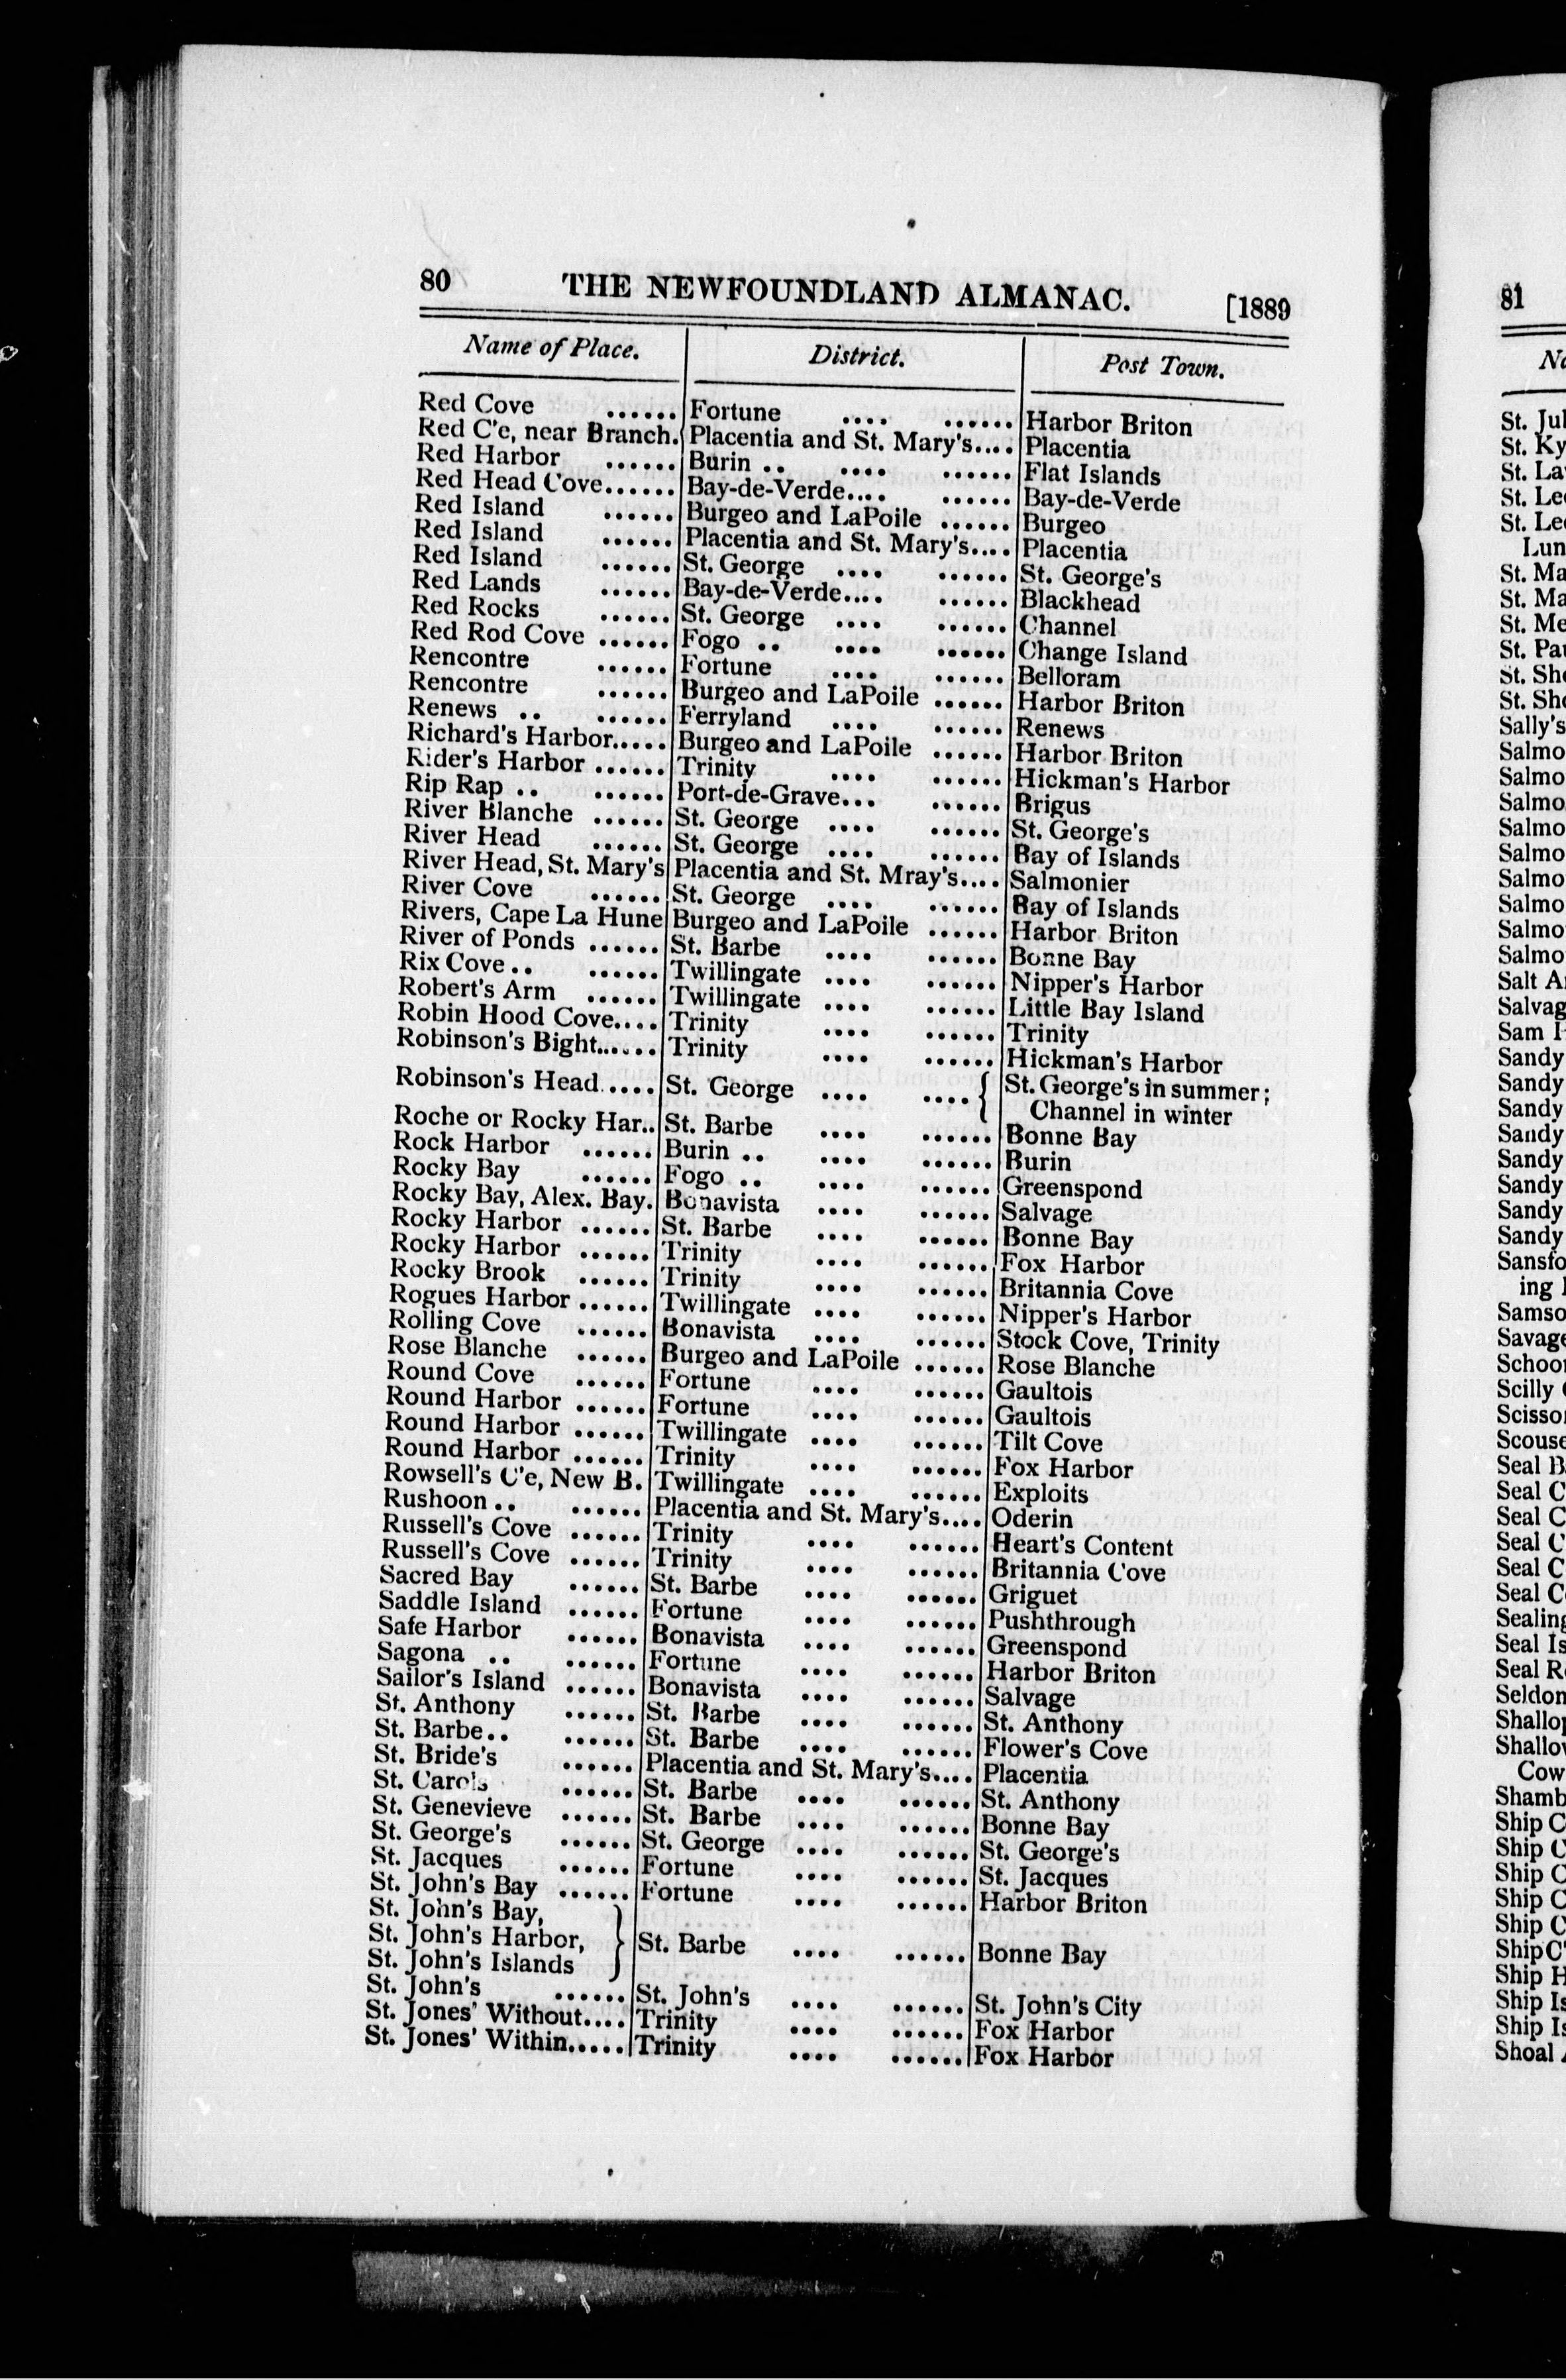 80 THE NEWFOUNDLAND ALMANAC. [1889
Name of Place. District. Post Town.
Red Cove ...... Fortune .... ...... Harbor Briton
Red C'e, near Branch. Placentia and St. Mary's.... Placentia
Red Harbor ...... Burin .. .... ...... Flat Islands
Red Head Cove...... Bay-de-Verde.... ...... Bay-de-Verde
Red Island ...... Burgeo and LaPoile ...... Burgeo
Red Island ...... Placentia and St. Mary's.... Placentia
Red Island ...... St. George .... ...... St. George's
Red Lands ...... Bay-de-Verde.... ...... Blackhead
Red Rocks ...... St. George .... ...... Channel
Red Rod Cove ...... Fogo .. .... ...... Change Island
Rencontre ...... Fortune .... ...... Belloram
Rencontre ...... Burgeo and LaPoile ...... Harbor Briton
Renews .. ...... Ferryland .... ...... Renews
Richard's Harbor..... Burgeo and LaPoile ...... Harbor Briton
Rider's Harbor ...... Trinity .... ...... Hickman's Harbor
Rip Rap .. ...... Port-de-Grave... ...... Brigus
River Blanche ...... St. George .... ...... St. George's
River Head ...... St. George .... ...... Bay of Islands
River Head, St. Mary's Placentia and St. Mray's.... Salmonier
River Cove ...... St. George .... ...... Bay of Islands
Rivers, Cape La Hune Burgeo and LaPoile ...... Harbor Briton
River of Ponds ...... St. Barbe .... ...... Bonne Bay
Rix Cove.. ...... Twillingate .... ...... Nipper's Harbor
Robert's Arm ...... Twillingate .... ...... Little Bay Island
Robin Hood Cove.... Trinity .... ...... Trinity
Robinson's Bight...... Trinity .... ...... Hickman's Harbor
Robinson's Head..... St. George .... .... { St. George's in summer;
Channel in winter
Roche or Rocky Har.. St. Barbe .... ...... Bonne Bay
Rock Harbor ...... Burin .. .... ...... Burin
Rocky Bay ...... Fogo .. .... ...... Greenspond
Rocky Bay, Alex. Bay. Bonavista .... ...... Salvage
Rocky Harbor ...... St. Barbe .... ...... Bonne Bay
Rocky Harbor ...... Trinity .... ...... Fox Harbor
Rocky Brook ...... Trinity .... ...... Britannia Cove
Rogues Harbor ...... Twillingate .... ...... Nipper's Harbor
Rolling Cove ...... Bonavista .... ...... Stock Cove, Trinity
Rose Blanche ...... Burgeo and LaPoile ...... Rose Blanche
Round Cove ...... Fortune .... ...... Gaultois
Round Harbor ...... Fortune .... ...... Gaultois
Round Harbor ...... Twillingate .... ...... Tilt Cove
Round Harbor ...... Trinity .... ...... Fox Harbor
Rowsell's C'e, New B. Twillingate .... ...... Exploits
Rushoon .. ...... Placentia and St. Mary's.... Oderin
Russell's Cove ...... Trinity .... ...... Heart's Content
Russell's Cove ...... Trinity .... ...... Britannia Cove
Sacred Bay ...... St. Barbe .... ...... Griguet
Saddle Island ...... Fortune .... ...... Pushthrough
Safe Harbor ...... Bonavista .... ...... Greenspond
Sagona .. ...... Fortune .... ...... Harbor Briton
Sailor's Island ...... Bonavista .... ...... Salvage
St. Anthony ...... St. Barbe .... ...... St. Anthony
St. Barbe.. ...... St. Barbe .... ...... Flower's Cove
St. Bride's ...... Placentia and St. Mary's.... Placentia
St. Carols ...... St. Barbe .... ...... St. Anthony
St. Genevieve ...... St. Barbe .... ...... Bonne Bay
St. George's ...... St. George .... ...... St. George's
St. Jacques ...... Fortune .... ...... St. Jacques
St. John's Bay ...... Fortune .... ...... Harbor Briton
St. John's Bay,
St. John's Harbor, } St. Barbe .... ...... Bonne Bay
St. John's Islands
St. John's ...... St. John's .... ...... St. John's City
St. Jones' Without.... Trinity .... ...... Fox Harbor
St. Jones' Within..... Trinity .... ...... Fox Harbor
81
St.
St.
St.
St.
St.
St.
St.
St.
St.
St.
St.
Sally's
Salt
Sam
Sandy
Sandy
Sandy
Sandy
Sandy
Sandy
Sandy
Sandy
ing
Scilly
Seal
Seal
Seal
Seal
Seal
Seal
Seal
Seal
Cow
Ship
Ship
Ship
Ship
Ship
Ship
Ship
Ship
Ship
Shoal